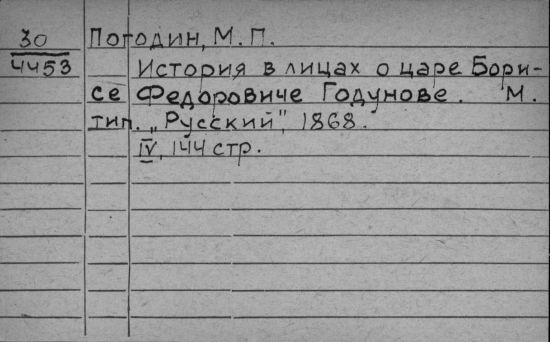 30 Погодин, М. П.
4453 История в лицах о царе Бори-
се Федоровиче Годунове. М.
тип. „Русский", 1868.
IV, 144 стр.